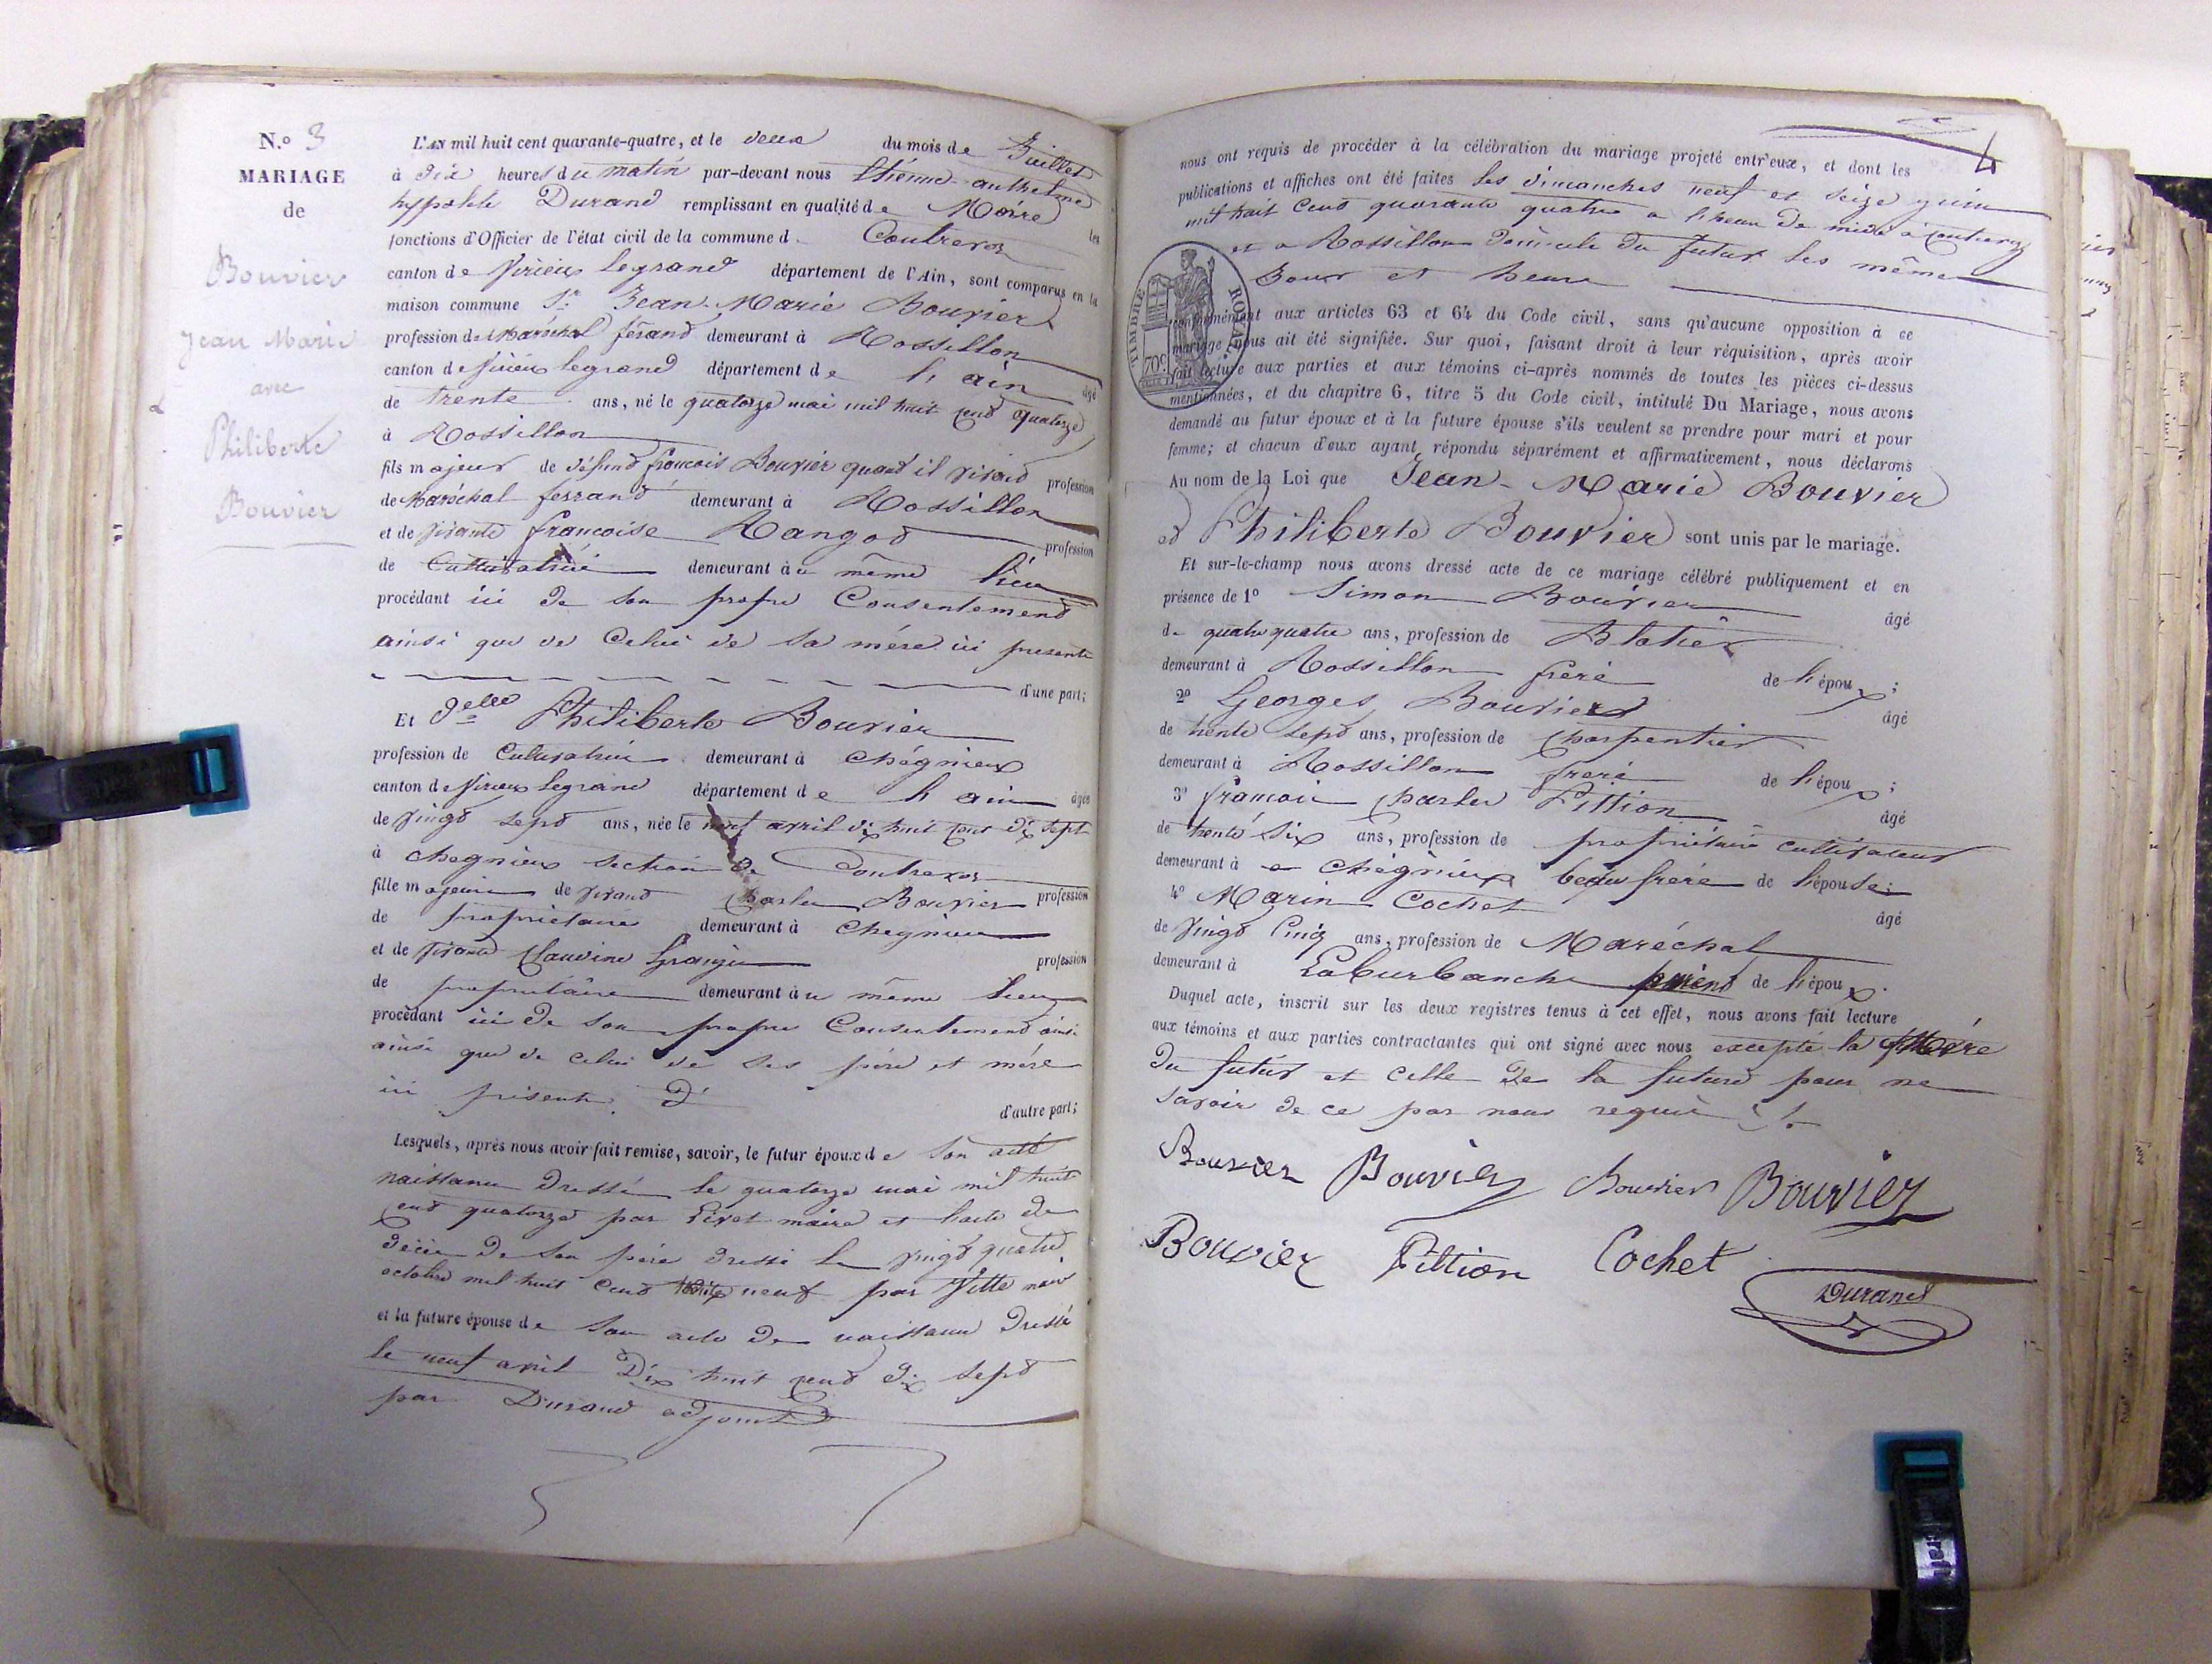 N.o 3
MARIAGE
de
Bouvier
Jean Marie
avec
Philiberte
Bouvier
L'AN mil huit cent quarante-quatre, et le deux du mois de Juillet
à dix heures du matin par-devant nous Etienne anthelme
hypolite Durand remplissant en qualité de Maire les
fonctions d'Officier de l'état civil de la commune d. Contrevoz
canton de Virieu legrand département de l'Ain, sont comparus en la
maison commune Sr. Jean-Marie Bouvier
profession de Maréchal férand demeurant à Rossillon
canton de Virieu legrand département de l'ain âgé
de trente ans, né le quatorze mai mil huit cent quatorze
à Rossillon
fils majeur de défunt françois Bouvier quand il vivait profession
de Maréchal ferrand demeurant à Rossillon
et de vivante francoise Rangod profession
de Cultivatrice demeurant au même lieu
procédant ici de son propre Consentement
ainsi que de Celui de sa mère ici presente
d'une part;
Et Delle Philiberte Bouvier
profession de Cultivatrice demeurant à chégnieux
canton de Virieu legrand département de l'ain âgée
de vingt sept ans, née le neuf avril dix huit cent dix sept
à chegnieux section de Contrevoz
fille majeure de vivant Charles Bouvier profession
de propriétaire demeurant à Chegnieu
et de vivante Claudine profession
de propriétaire demeurant au même lieu
procédant ici de son propre Consentement ainsi
ainsi que de celui de ses père et mère
ici présents. d'autre part;
Lesquels, après nous avoir fait remise, savoir, le futur époux de son acte
naissance dressé le quatorze mai mil huit
cent quatorze par maire et l'acte de
décès de son père dressé le vingt quatre
octobre mil huit cent neuf par
et la future épouse de son acte de naissance dressé
le neuf avril Dix huit cent dix sept
par Durand adjoint
4
nous ont requis de procéder à la célébration du mariage projeté entr'eux, et dont les
publications et affiches ont été faites les dimanches neuf et seize juin
mil huit cent quarante quatre a l'heure de midi à Contrevoz
et a Rossillon domicile du futur les même
Jour et heure
TIMBRE ROYAL
70c.
conformément aux articles 63 et 64 du Code civil, sans qu'aucune opposition à ce
mariage nous ait été signifiée. Sur quoi, faisant droit à leur réquisition, après avoir
fait lecture aux parties et aux témoins ci-après nommés de toutes les pièces ci-dessus
mentionnées, et du chapitre 6, titre 5 du Code civil, intitulé Du Mariage, nous avons
demandé au futur époux et à la future épouse s'ils veulent se prendre pour mari et pour
femme; et chacun d'eux ayant répondu séparément et affirmativement, nous déclarons
Au nom de la Loi que Jean-Marie Bouvier
et Philiberte Bouvier sont unis par le mariage.
Et sur-le-champ nous avons dressé acte de ce mariage célébré publiquement et en
présence de 1o Simon Bouvier âgé
d. quatre quatre ans, profession de Blatier
demeurant à Rossillon frère de l'époux;
2o Georges Bouvier âgé
de trente sept ans, profession de Charpentier
demeurant à Rossillon frere de l'époux;
3o françois Charles Pittion âgé
de trente six ans, profession de propriétaire cultivateur
demeurant à a Chégnieux beau frère de l'épouse;
4o Marin Cochet âgé
de vingt Cinq ans, profession de Maréchal
demeurant à Laburbanche parent de l'époux.
Duquel acte, inscrit sur les deux registres tenus à cet effet, nous avons fait lecture
aux témoins et aux parties contractantes qui ont signé avec nous excepté la Mère
Du futur et Celle De la future pour ne
savoir de ce par nous requis
Bouvier Bouvier Bouvier Bouvier
Bouvier Pittion Cochet
Durand